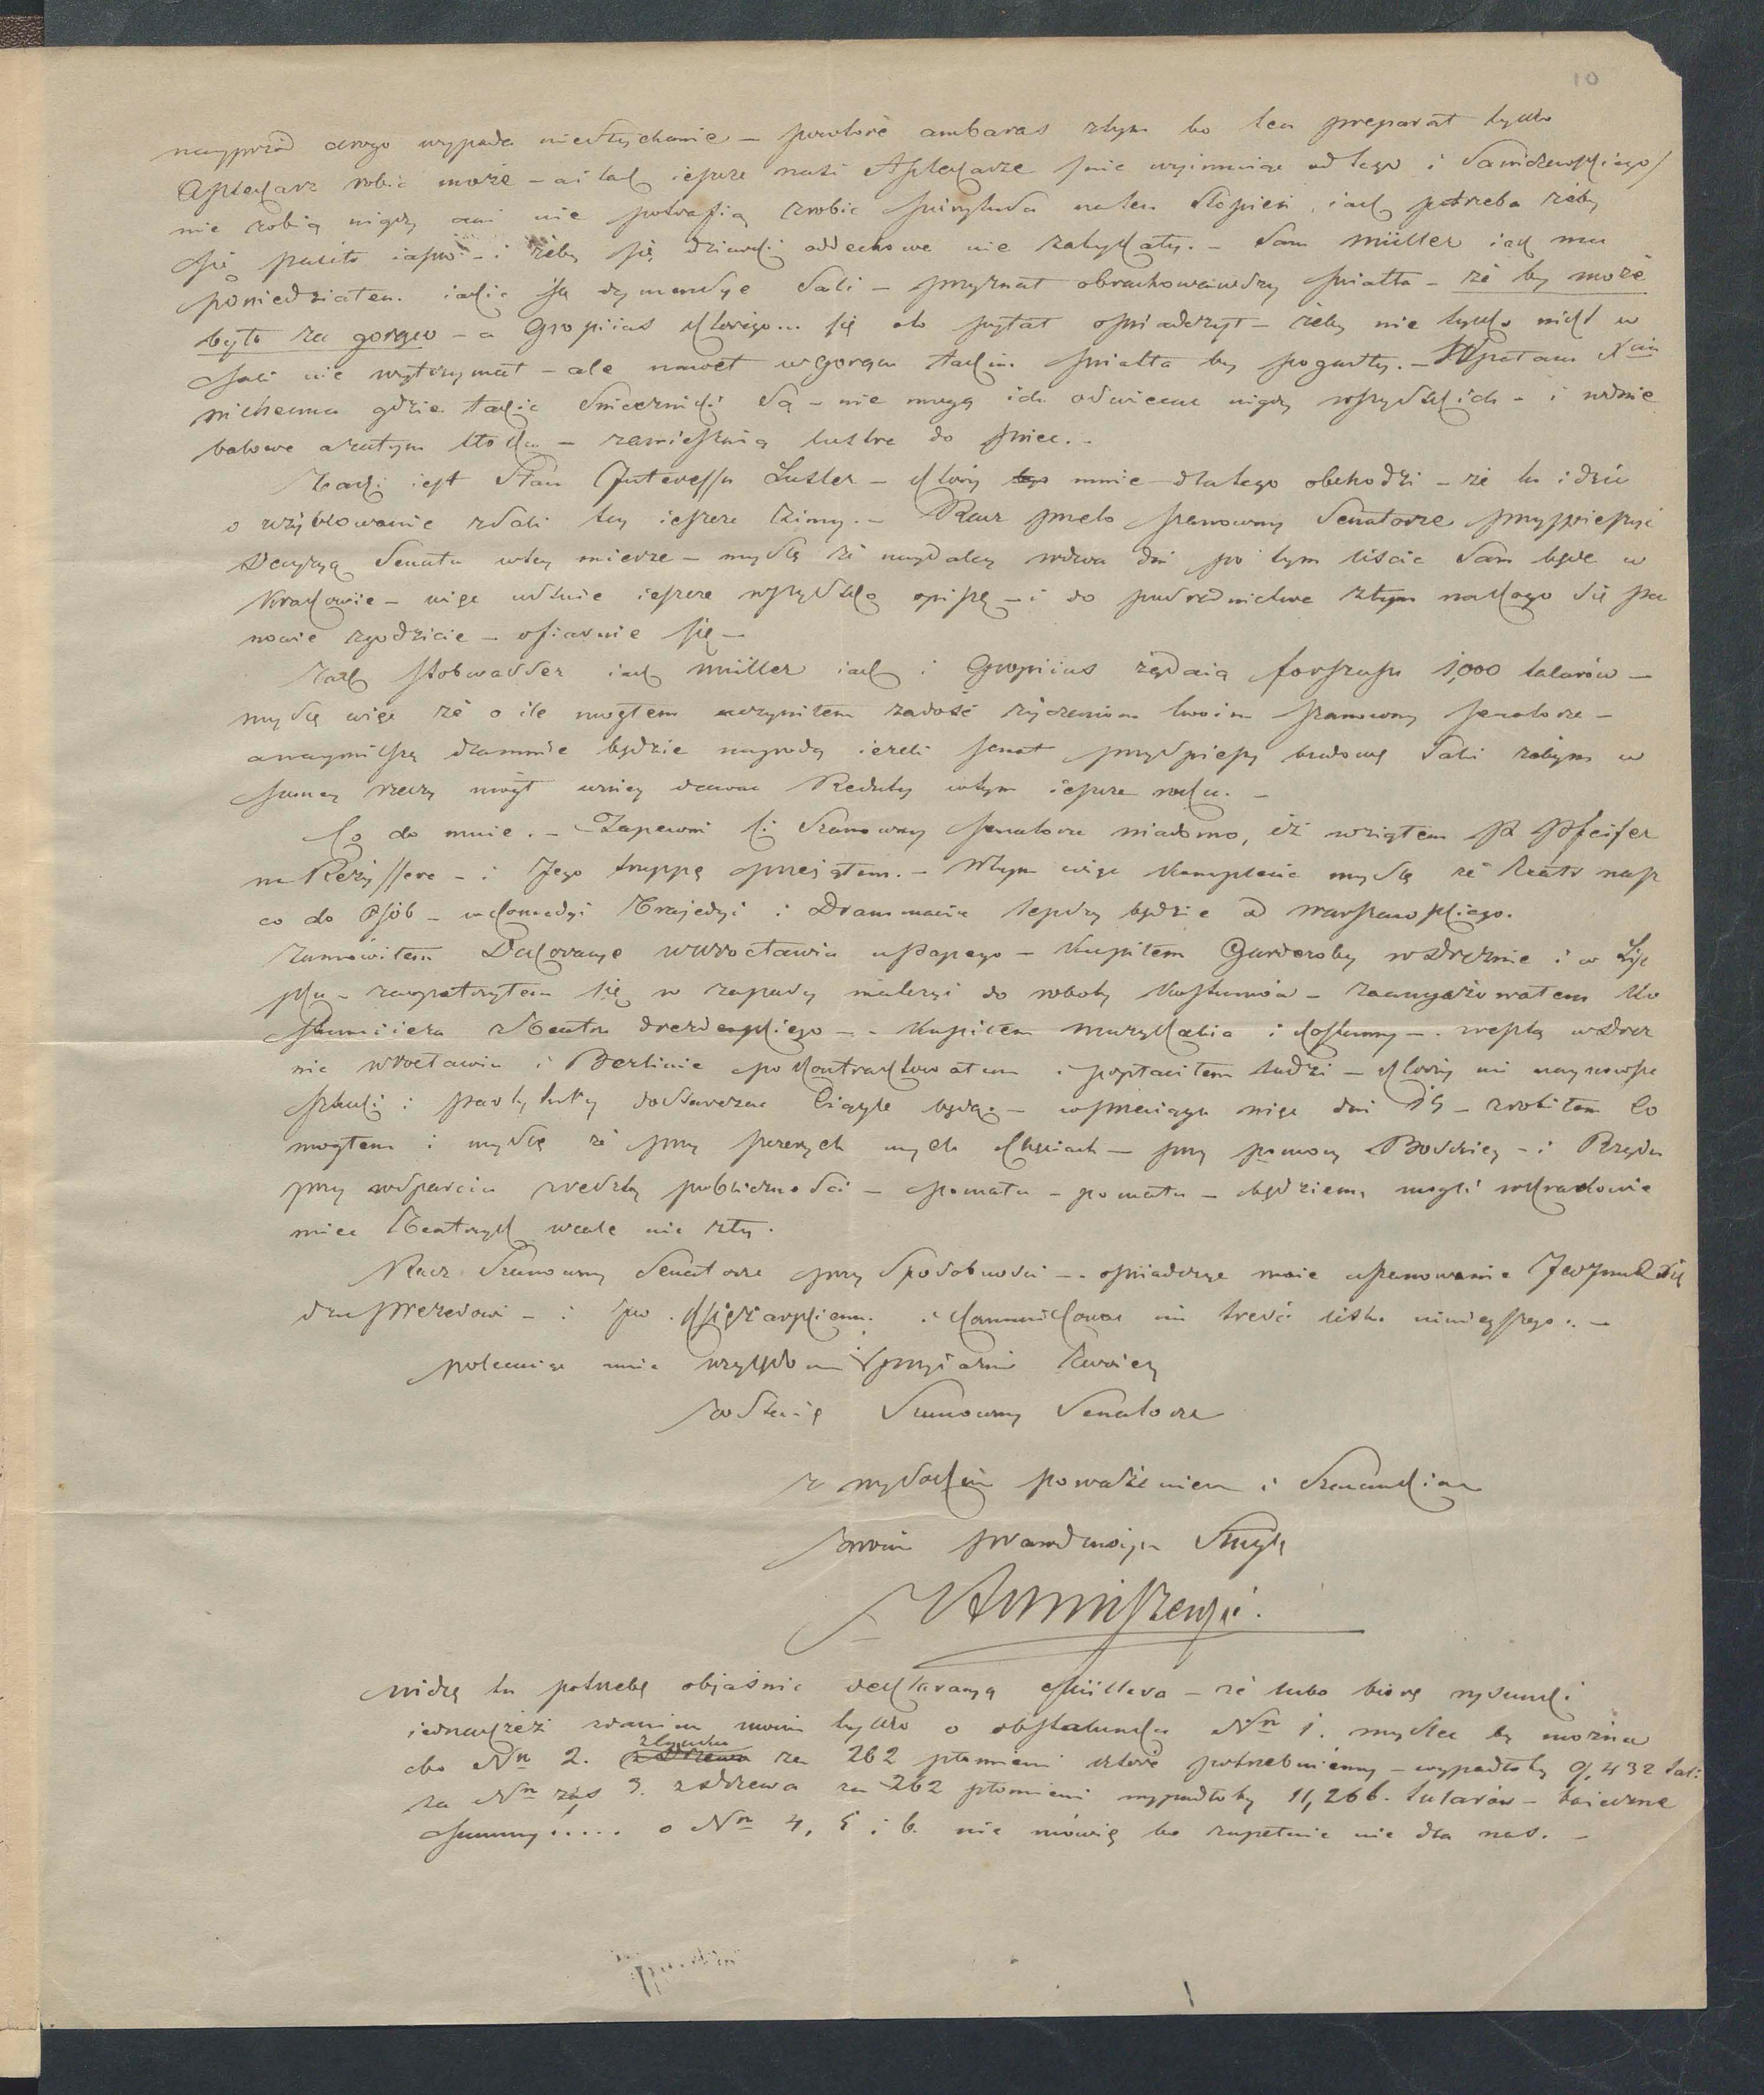 10
nayprzód drogo wypada niesłychanie – powtóre ambaras ztym bo ten preparat tylko
Aptekarz robić może – ai tak iescze nasi Aptekarze /nie wyimuiąc od tego i Sawiczewskiego/
nie robią nigdy ani nie potrafią zrobić spirytusu na ten stopień, iak potrzeba żeby
się palito iasno – i żeby się dziurki oddechowe nie zatykały. – Sam Müller iak mu
powiedziałem iakie są dymensye Sali – przyznał obrachowawszy światła – że by może
było za gorąco – a Gropiius którego... się o to pytał oświadczył – żeby nie tylko nikt w
Sali nie wytrzymał – ale nawet w gorącu takim światła by pogasły. –
gdzie takie Świeczniki Są – nie mogą ich oświecać nigdy wszystkich – i
balowe – zamieszkią lustra do świec. –
Taki iest Stan Interessu Luster – który mnie dlatego obchodzi – że tu idzie
o użytkowanie zSali tey iescze Zimy. – Racz przeto szanowny Senatorze przyspieszyć
Decyzyą Senatu wtey mierze – myślę że naydaley wdwa dni po tym liście Sam będę w
Krakowie – więc ustnie iescze wszystko opiszę – i do pośrednictwa ztym na kogo się pa
nowie zgodzicie – ofiaruie się –
Tak Stobwasser iak Müller iak i Gropiius żądaią forszusu 1,000 talarów –
myślę więc że o ile mogłem uczyniłem zadość życzeniom twoim szanowny senatorze –
a naymilszą dlamnie będzie nagrodą ieżeli senat przyspieszy budowę Sali żebym w
samey rzeczy mógł wniey dawać Reduty wtym iescze roku. –
Co do mnie. – Zapewne Ci Szanowny senatorze wiadomo, iż wziąłem JP Pfeifer
na Reżyssera – i Jego truppę przejąłem. – Wtym więc komplecie myślę że Teatr nasz
co do Osób – w Komedyi Trajedyi i Drammacie lepszy będzie od warszawskiego.
Zamówiłem Dekoracye w Wrocławiu – Kupiłem Garderoby w Dreznie i w Lip
sku – zaopatrzyłem się w zapasy materyi do roboty kostiumów – zaangażowałem Ko
stiumiera Teatru drezdeńskiego – Kupiłem muzykalia i kostiumy – w Drez
nie Wrocławiu i Berlinie pokontraktowałem i popłaciłem ludzi – którzy mi naynowsze
sztuki i partytury dostarczać Ciągle będą – w przeciągu więc dni 15 – zrobiłem Co
mogłem i myślę że przy szczerych mych Chęciach – przy pomocy Boskiey – i Rządu
przy wsparciu zresztą publiczności – pomału – pomału – będziemy mogli w Krakowie
mieć Teatrzyk wcale nie zły.
Racz Szanowny Senatorze przy Sposobności – oświadczyć moie uszanowanie
Prezesowi – i JW. Księżarskiemu i kommunikować im treść listu ninieyszego. –
polecaiąc mnie względom i przyiaźni twoiey
zostaię Szanowny Senatorze
z wysokim poważaniem i Szacunkiem
twoim prawdziwym Sługą

Widzę tu potrzebę obiaśnić deklaracyą Müllera – że lubo biorę rysunki
iednakżeż zdaniem moim tylko o obstalunku Nr 1. myśleć by można
bo Nr 2. za 262 płomieni które potrzebuiemy – wypadłoby 9,432 tal:
za Nr zaś 3. z drzewa za 262 płomieni wypadłoby 11,266. talarów – baieczne
summy..... o Nr 4, 5 i 6. nie mówię bo zupełnie nie dla nas. –